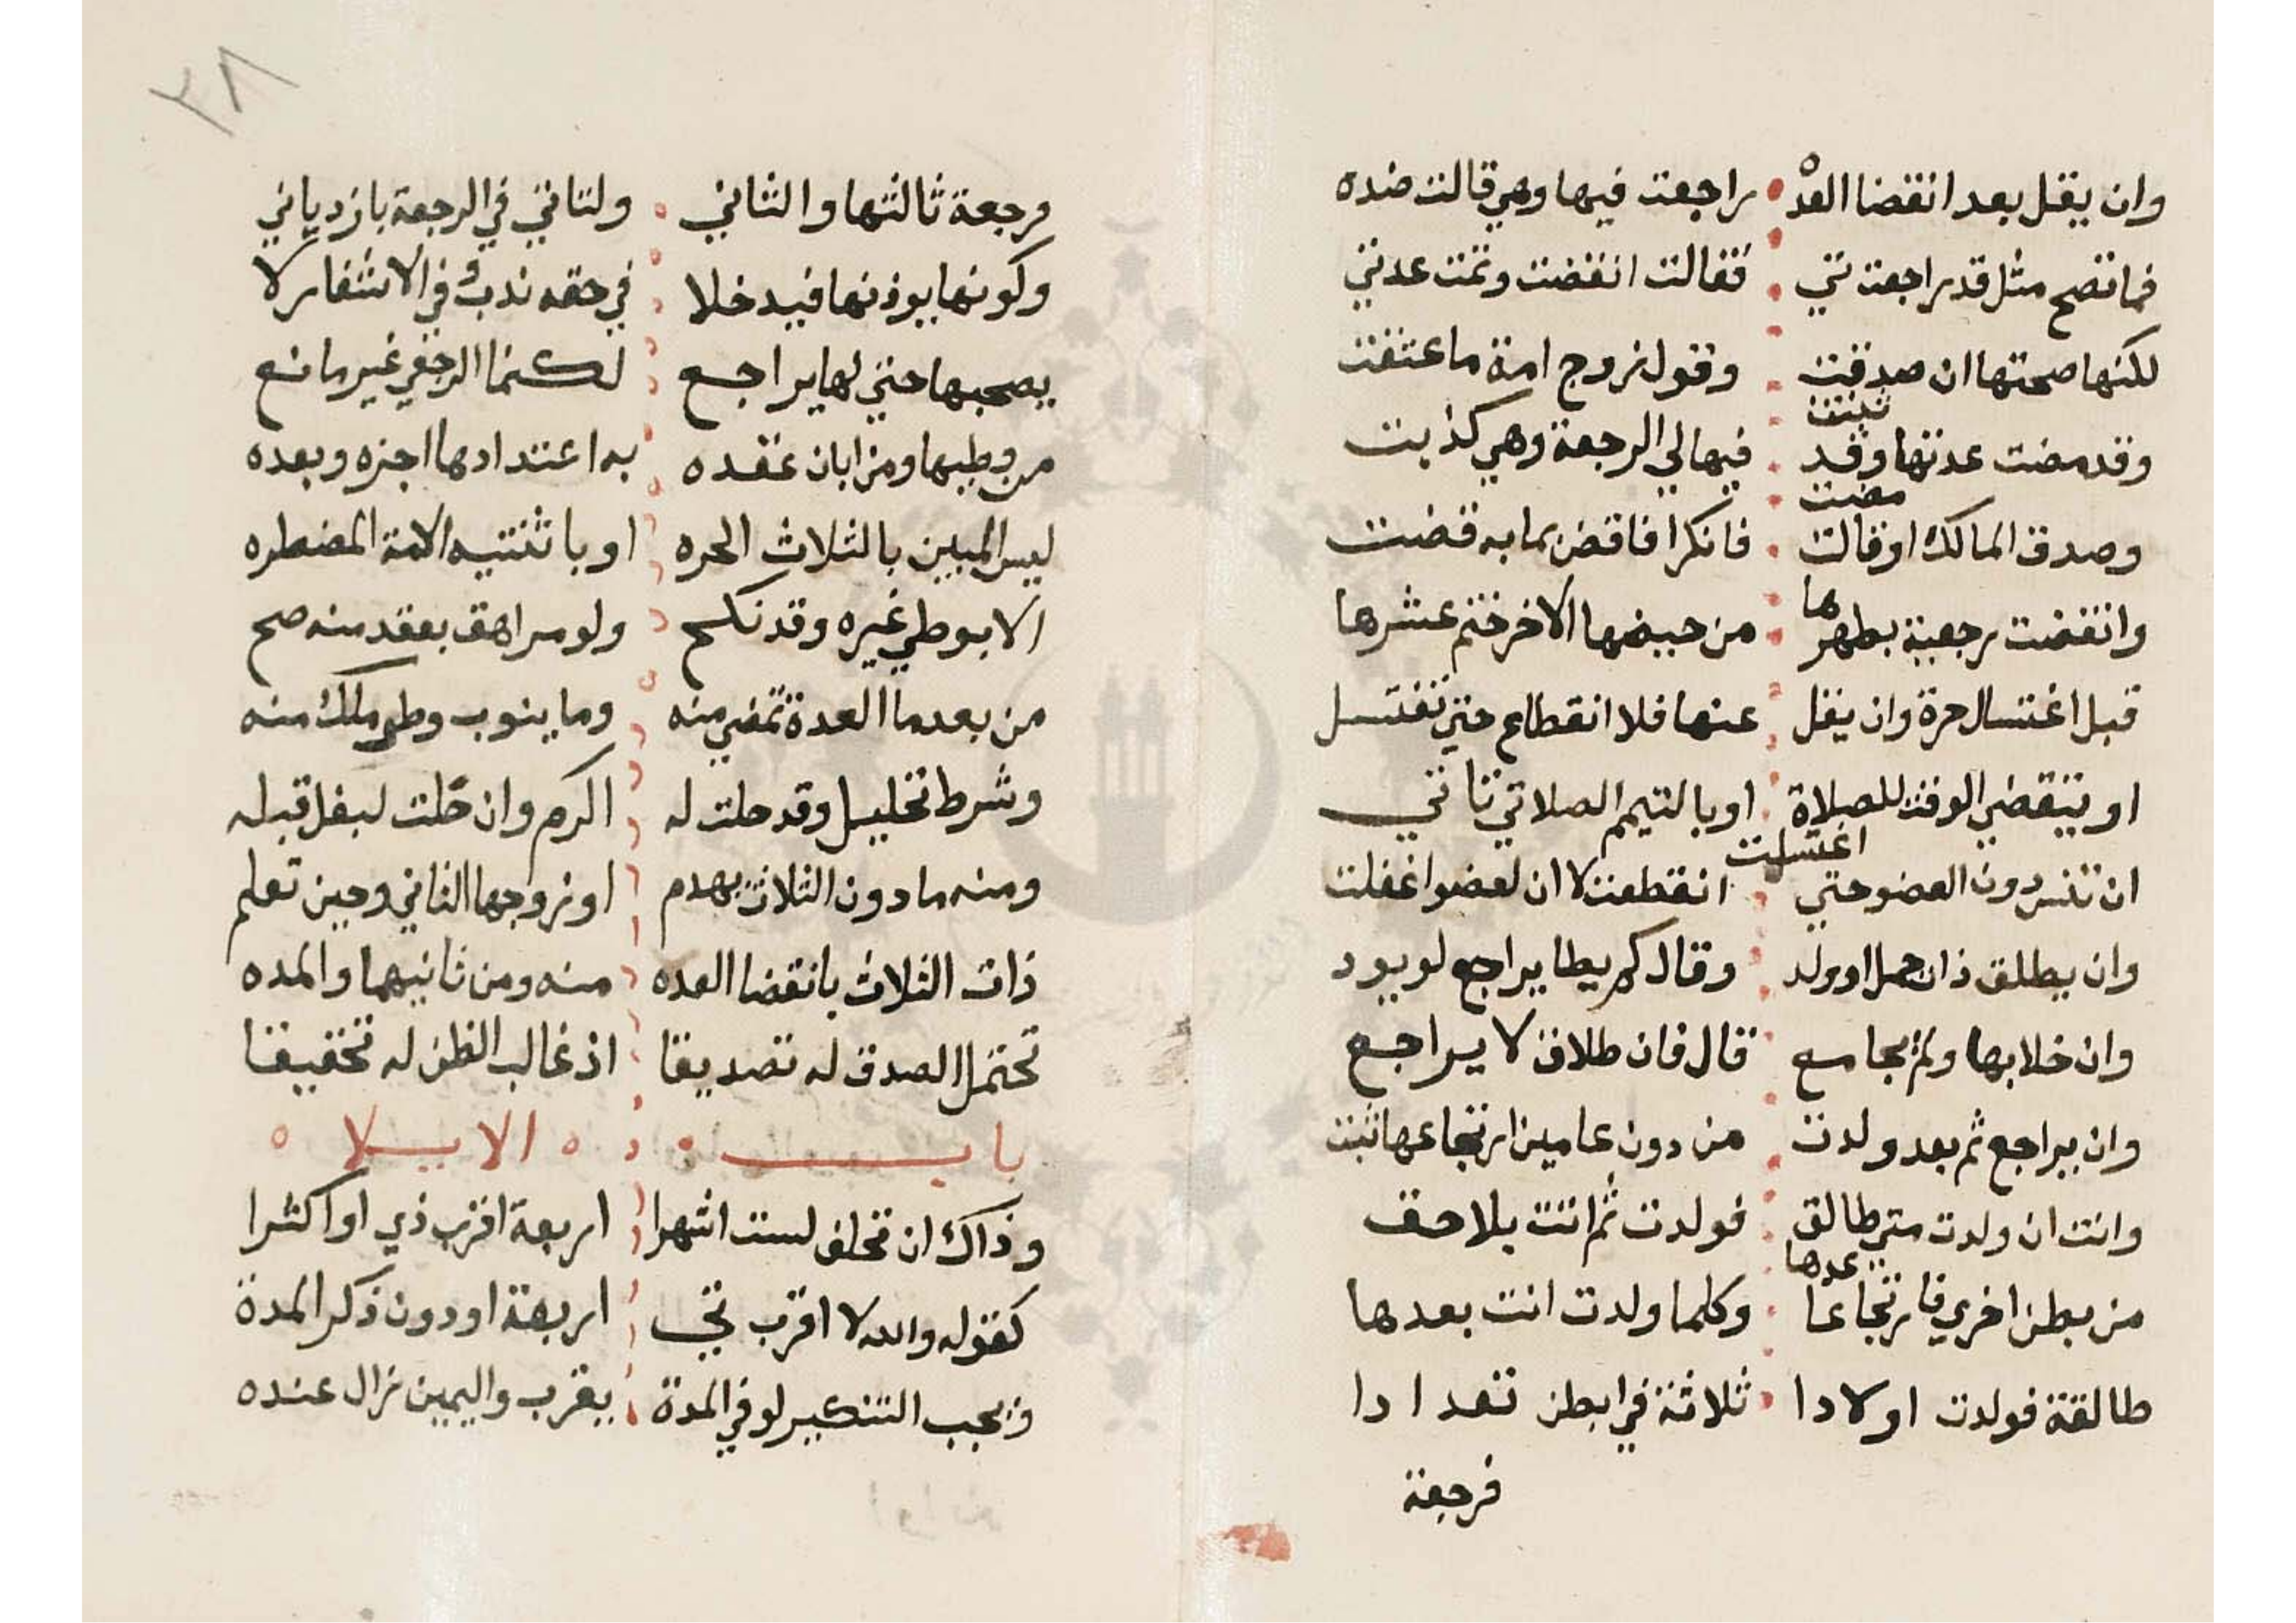 وان يقل بعد انقضا العده راجعت فيها وهي قالت ضده
فما تصح مثل قد راجعتني فقالت انقضت وتمت عدتي
لكنها صحتها ان صدقت وقول زوج امة ما عتقت
وقد مضت عدتها وقد ثبتت فيها لي الرجعة وهي كذبت
وصدق المالك او قالت مضت فانكرا فاقض بما به قضت
وانقضت رجعية بطهرها من حيضها الاخر ختم عشرها
قبل اغتسال حرة وان يقل عنها فلا انقطاع حتي تغتسل
او ينقضي الوقت للصلاة او بالتيمم الصلاتي تاتي
ان تنس دون العضو حتي اغتسلت انقطعت لا ان لعضو اغفلت
وان يطلق ذات حمل او ولد وقال لم يطا يراجع لو يود
وان خلا بها ولم يجامع قال فان طلاق لا يراجع
وان يراجع ثم بعد ولدت من دون عامين ارتجاعها ثبت
وانت ان ولدت متي طالق فولدت ثم اتت بلاحق
من بطن اخري فارتجاعا عدها وكلما ولدت انت بعدها
طالقة فولدت اولادا ثلاثة في ابطن تعدادا
فرجعة
٢٨
فرجعة ثالثها والثاني ولتاتي في الرجعة بازدياني
وكونها يوذنها فيدخلا في حقه ندب وفي الاشفار لا
يصحبها حتي لها يراجع لكنما الرجعي غير مانع
من وطيها ومن ابان عقده به اعتدادها اجزه وبعده
ليس المبين بالثلاث الحره او باثنتيه الامة المضطره
الا بوطي غيره وقد نكح ولو مراهق بعقد منه صح
من بعدما العدة تمضي منه وما ينوب وطي ملك منه
وشرط تحليل وقد حلت له اكرم وان حلت لبغل قبله
ومنه ما دون الثلاث يهدم او زوجها الثاني وحين تعلم
ذات الثلاث بانقضا العده منه ومن ثانيهما والمده
تحتمل الصدق له تصديقا اذ غالب الظن له تحقيقا
باب الايلا
وذاك ان تحلف لست اشهرا اربعة اقرب ذي او اكثرا
كقوله والله لا اقرب تي اربعة او دون ذكر المدة
فيجب التكفير لو في المدة يقرب واليمين زال عنده